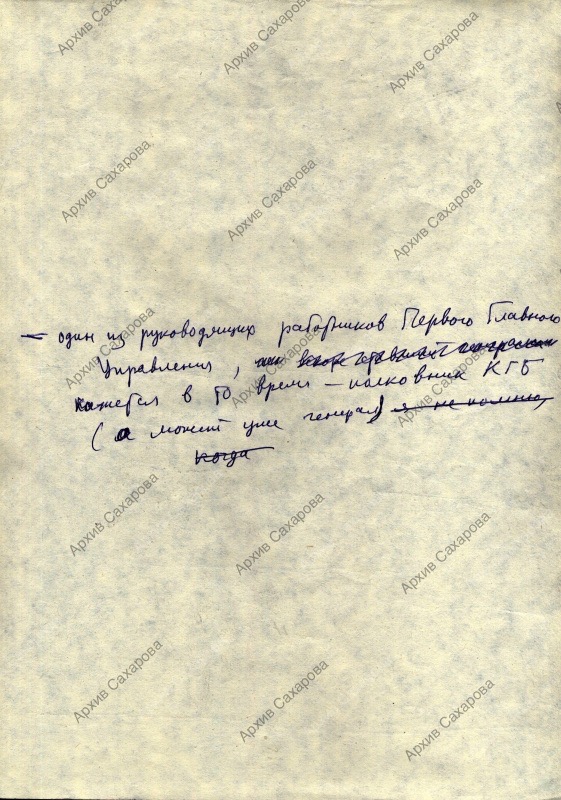 Архив Сахарова
Архив Сахарова
Архив Сахарова
Архив Сахарова
Архив Сахарова
Архив Сахарова
— один из руководящих работников Первого Главного
Управления,
кажется в то время – полковник КГБ
(а может уже генерал) я не помню,
когда
Архив Сахарова
Архив Сахарова
Архив Сахарова
Архив Сахарова
Архив Сахарова
Архив Сахарова
Архив Сахарова
Архив Сахарова
Архив Сахарова